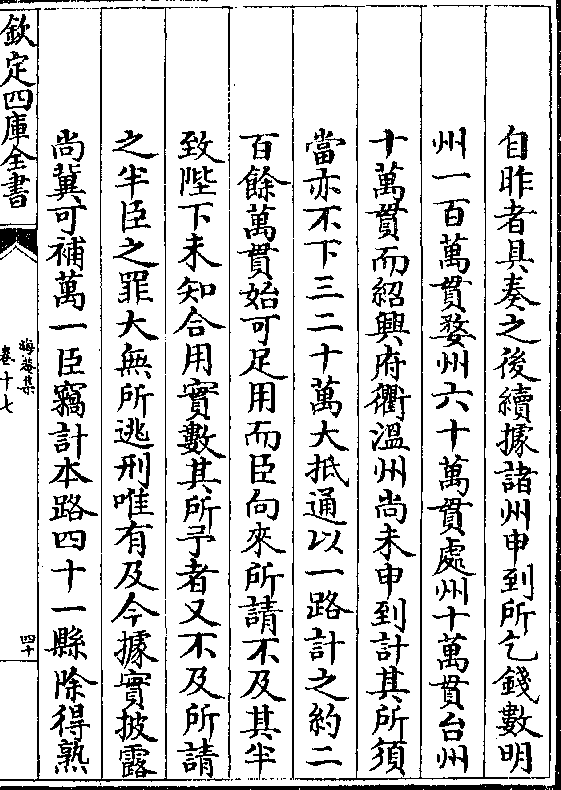 自昨者具奏之後續據諸州申到所乞錢數明
州一百萬貫婺州六十萬貫處州十萬貫台州
十萬貫而紹興府衢溫州尚未申到計其所須
當亦不下三二十萬大抵通以一路計之約二
百餘萬貫始可足用而臣向來所請不及其半
致陛下未知合用實數其所予者又不及所請
之半臣之罪大無所逃刑唯有及今據實披露
尚冀可補萬一臣竊計本路四十一縣除得熟
欽定四庫全書
晦菴集
卷十七
四十